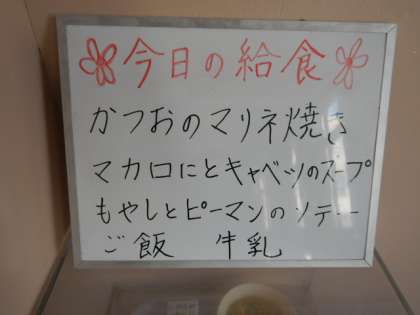 今日の給食
かつおのマリネ焼き
マカロにとキャベツのスープ
もやしとピーマンのソテー
ご飯 牛乳